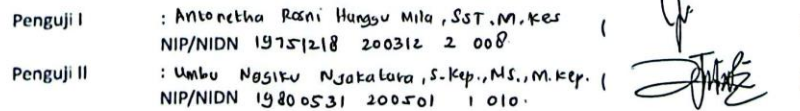 Penguji I : Antonetha Rosni Hunggu Mila, SST.M.Kes (
NIP/NIDN 19751218 200312 2 008.
Penguji II : Umbu Nggiku Njakatara, S-Kep., Ns., M.Kep. (
NIP/NIDN 19800531 200501 1 010.